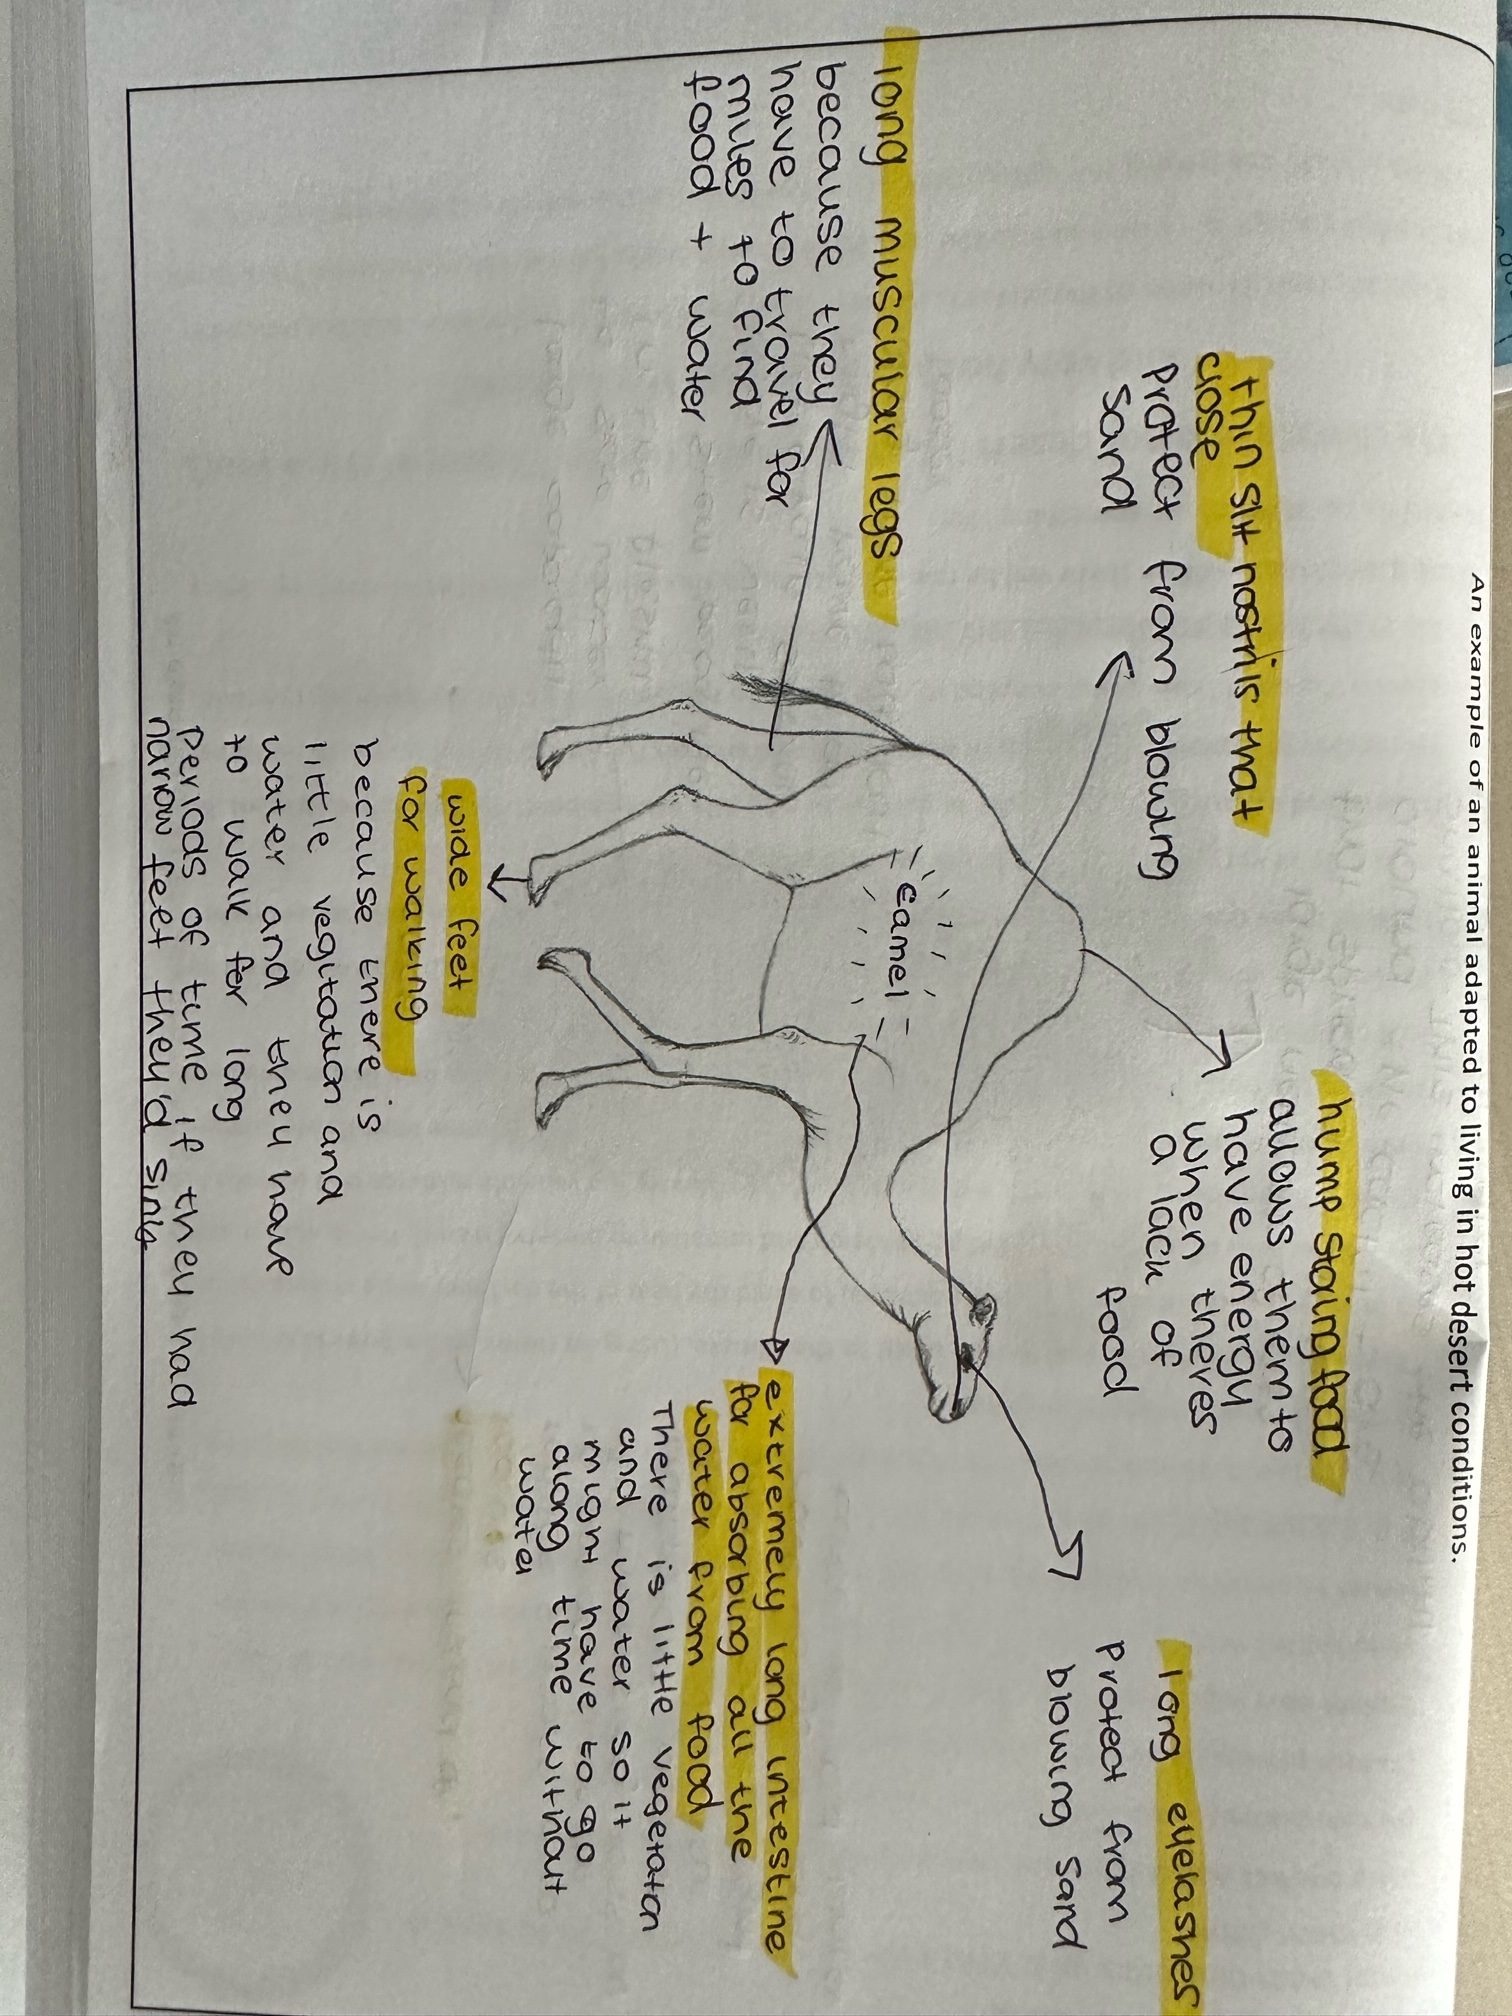 An example of an animal adapted to living in hot desert conditions.
thin slit nostrils that
close
Protect from blowing
sand
hump storing food
allows them to
have energy
when theres
a lack of
food
long eyelashes
Protect from
blowing sand
long muscular legs
because they
have to travel for
miles to find
food + water
camel
extremely long intestine
for absorbing all the
water from food
There is little vegetation
and water so it
might have to go
along time without
water
wide feet
for walking
because there is
little vegitation and
water and they have
to walk for long
Periods of time if they had
narrow feet they'd sink